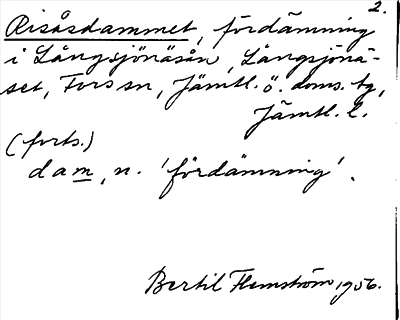 2.
Risåsdammet, fördämning
i Långsjönäsån, Långsjönä-
set, Fors sn, Jämtl. ö. doms. tg,
Jämtl. l.
(forts.)
dam, n. 'fördämning'.
Bertil Flemström 1956.